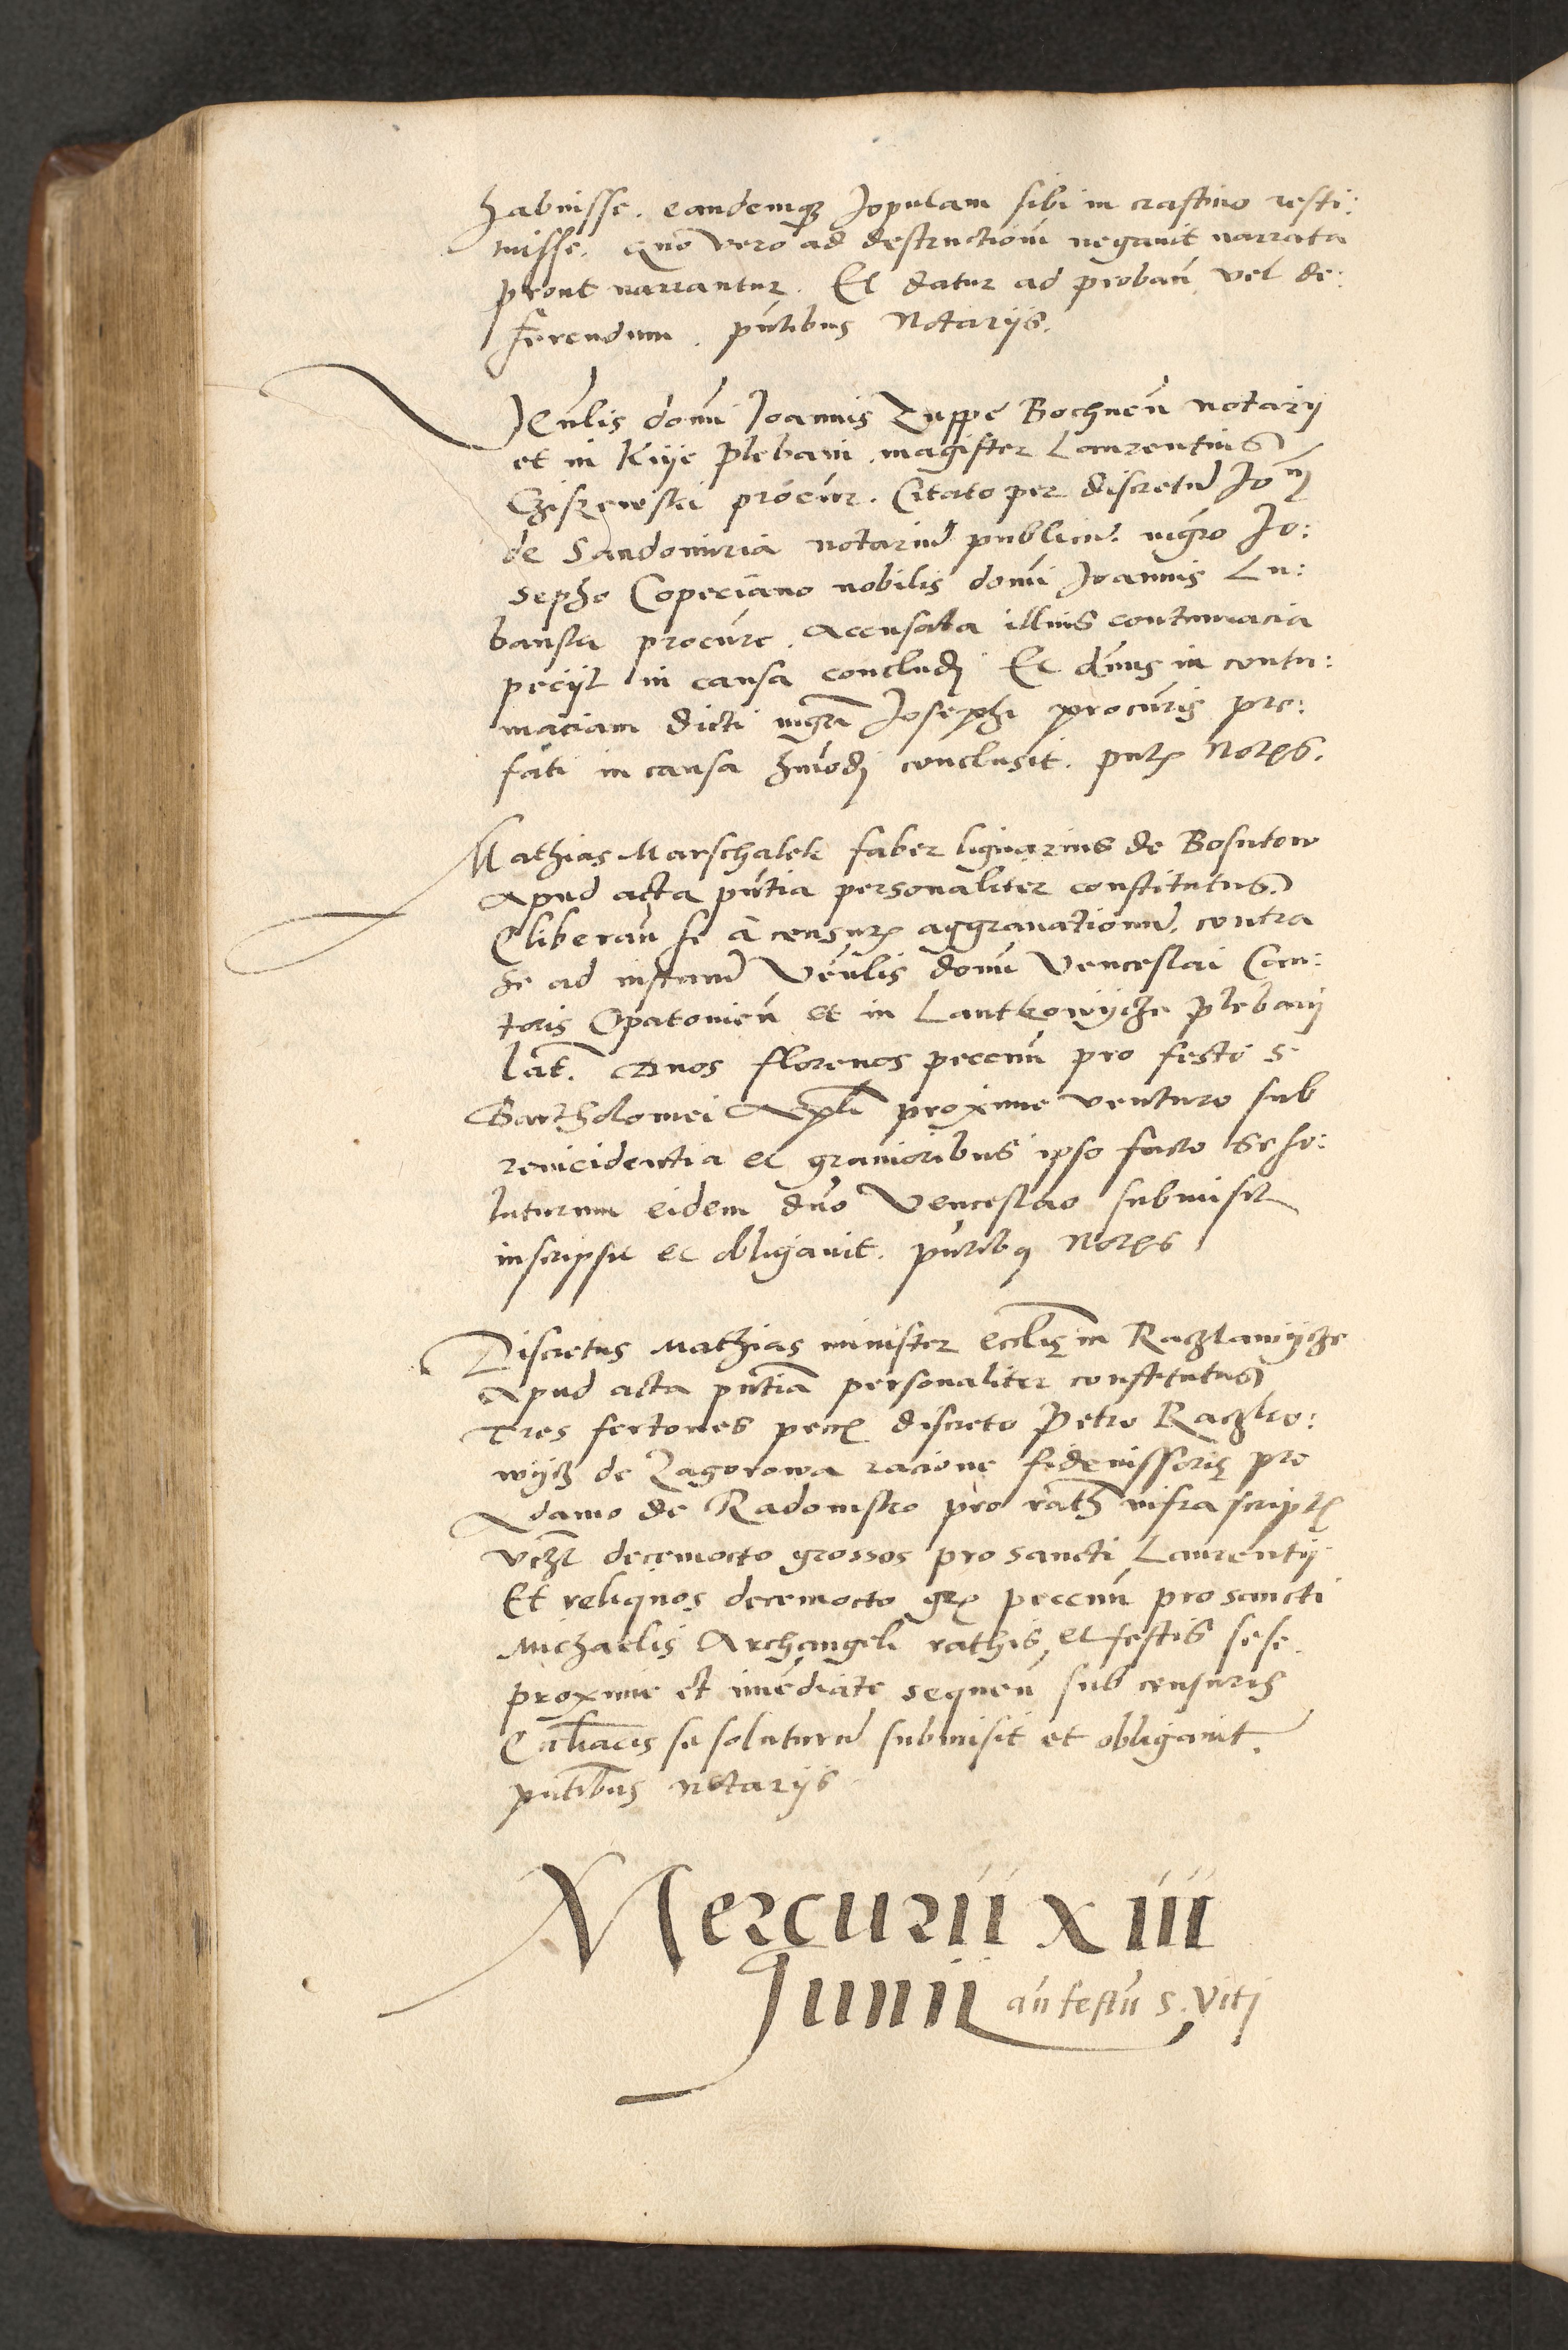 habuisse. eandemq₃ Jopulam sibi in crastino resti:
tuisse. Quo vero ad destructioni negavit narrata
prout narrantur. Et datur ad proban̄ vel de:
ferendum. pn̄tibus Notarijs.
Ven̄lis domi Joannis Zuppe Bochnen̄ notarij
et in Kije plebani magister Laurentius
procur. Citato per discretū Jo
de Sandomiria notariū publicū. mgr̄o Jo:
sepho Copeciano nobilis domi Joannis Lu:
procur. Accusata illius contumacia
peciit in causa concludj Et dn̄us in contu:
maciam dicti mgr̄i Josephi procuris pre:
fati in causa hmōdj conclusit. pn̄t Not̄s.
Mathias Marschalek faber lignarius de Bosutow
Apud acta pn̄tia personaliter constitutus
Cliberan̄ se a censur aggravationū. contra
se ad instanc̄ Ven̄lis domi Venceslai Can:
toris Opatovien̄ et in Lantkowycze plebanj
lat. Duos florenos pecun̄ pro festo S
Bartholomei Apl̄i proxime venturo sub
reincidentia et gravioribus ipso facto se so:
luturum eidem dn̄o Venceslao submisit
inscripsit et obligavit. pn̄tibꝰ Not̄s
Discretus Mathias minister eccl̄ie in Raczlawycze
Apud acta pn̄tia personaliter constitutus
Tres fertones pecc discreto Petro Raczko:
wycz de Zagorowa racione fideiussorie pro
Adamo de Radomsko pro rath infra script
vczt decemocto grossos pro sancti Laurentij
Et reliquos decemocto gr pecun̄ pro sancti
Michaelis Archangeli rathis et festis sese
proxime et imēdiate sequen̄ sub censuris
se soluturū submisit et obligavit.
pn̄tibus notarijs
Mercurii xiiii
Junii an̄ festū S. Viti